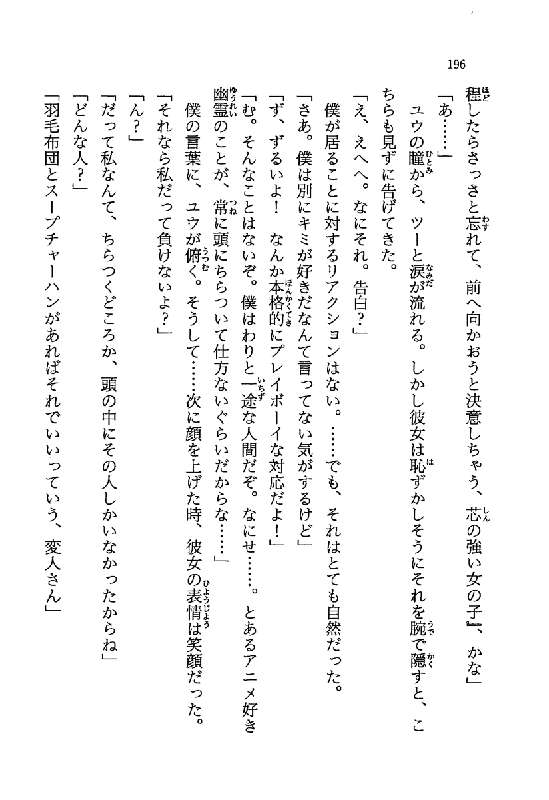 196
程したらさっさと忘れて、前へ向かおうと決意しちゃう、芯の強い女の子』、かな」
「あ……」
ユウの瞳から、ツーと涙が流れる。しかし彼女は恥ずかしそうにそれを腕で隠すと、こ
ちらも見ずに告げてきた。
「え、えへへ。なにそれ。告白？」
僕が居ることに対するリアクションはない。……でも、それはとても自然だった。
「さあ。僕は別にキミが好きだなんて言ってない気がするけど」
「ず、ずるいよ！　なんか本格的にプレイボーイな対応だよ！」
「む。そんなことはないぞ。僕はわりと一途な人間だぞ。なにせ……。とあるアニメ好き
幽霊のことが、常に頭にちらついて仕方ないぐらいだからな……」
僕の言葉に、ユウが俯く。そうして……次に顔を上げた時、彼女の表情は笑顔だった。
「それなら私だって負けないよ？」
「ん？」
「だって私なんて、ちらつくどころか、頭の中にその人しかいなかったからね」
「どんな人？」
「羽毛布団とスープチャーハンがあればそれでいいっていう、変人さん」